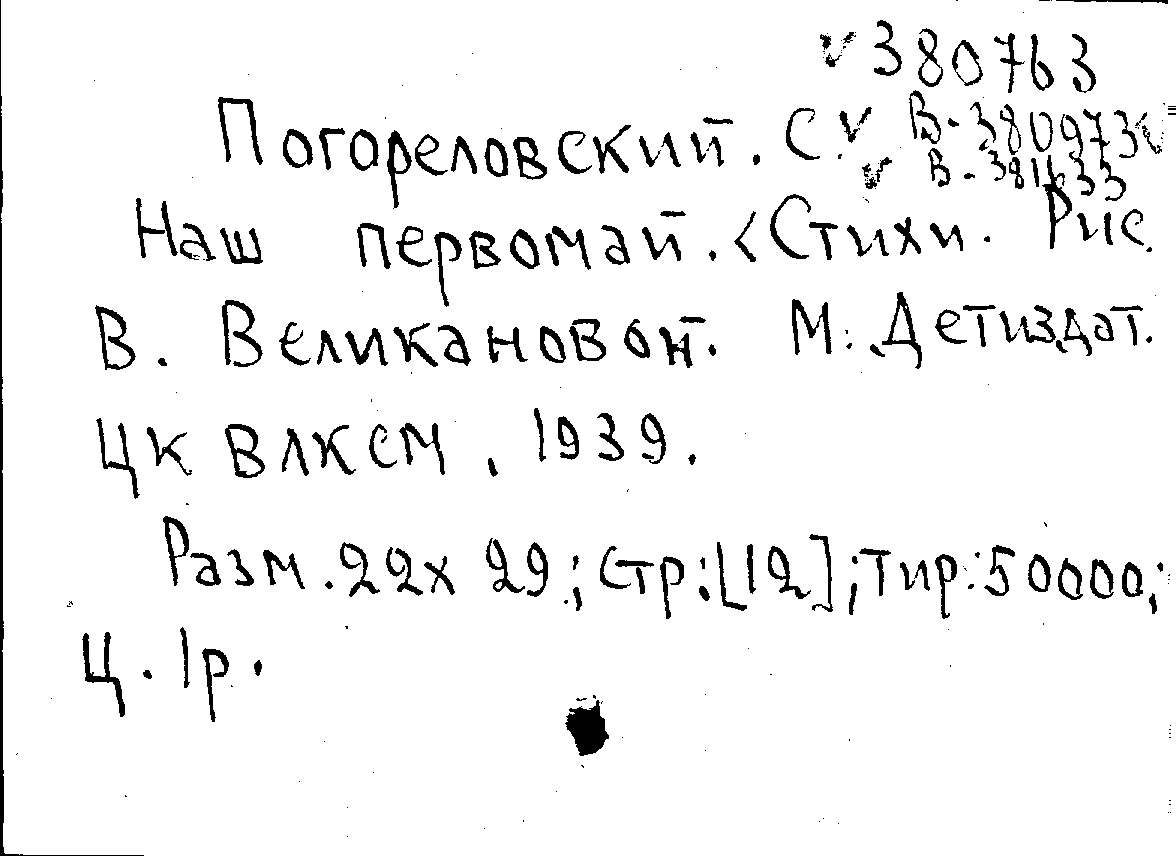 v 380763
Погореловский. С. v В-380973 v
v В-381633
Наш первомай. <Стихи. Рис.
В. Великановой. М. Детиздат.
ЦК ВЛКСМ, 1939.
Разм. 22х29; Стр: [12]; Тир: 50000;
Ц. 1р.